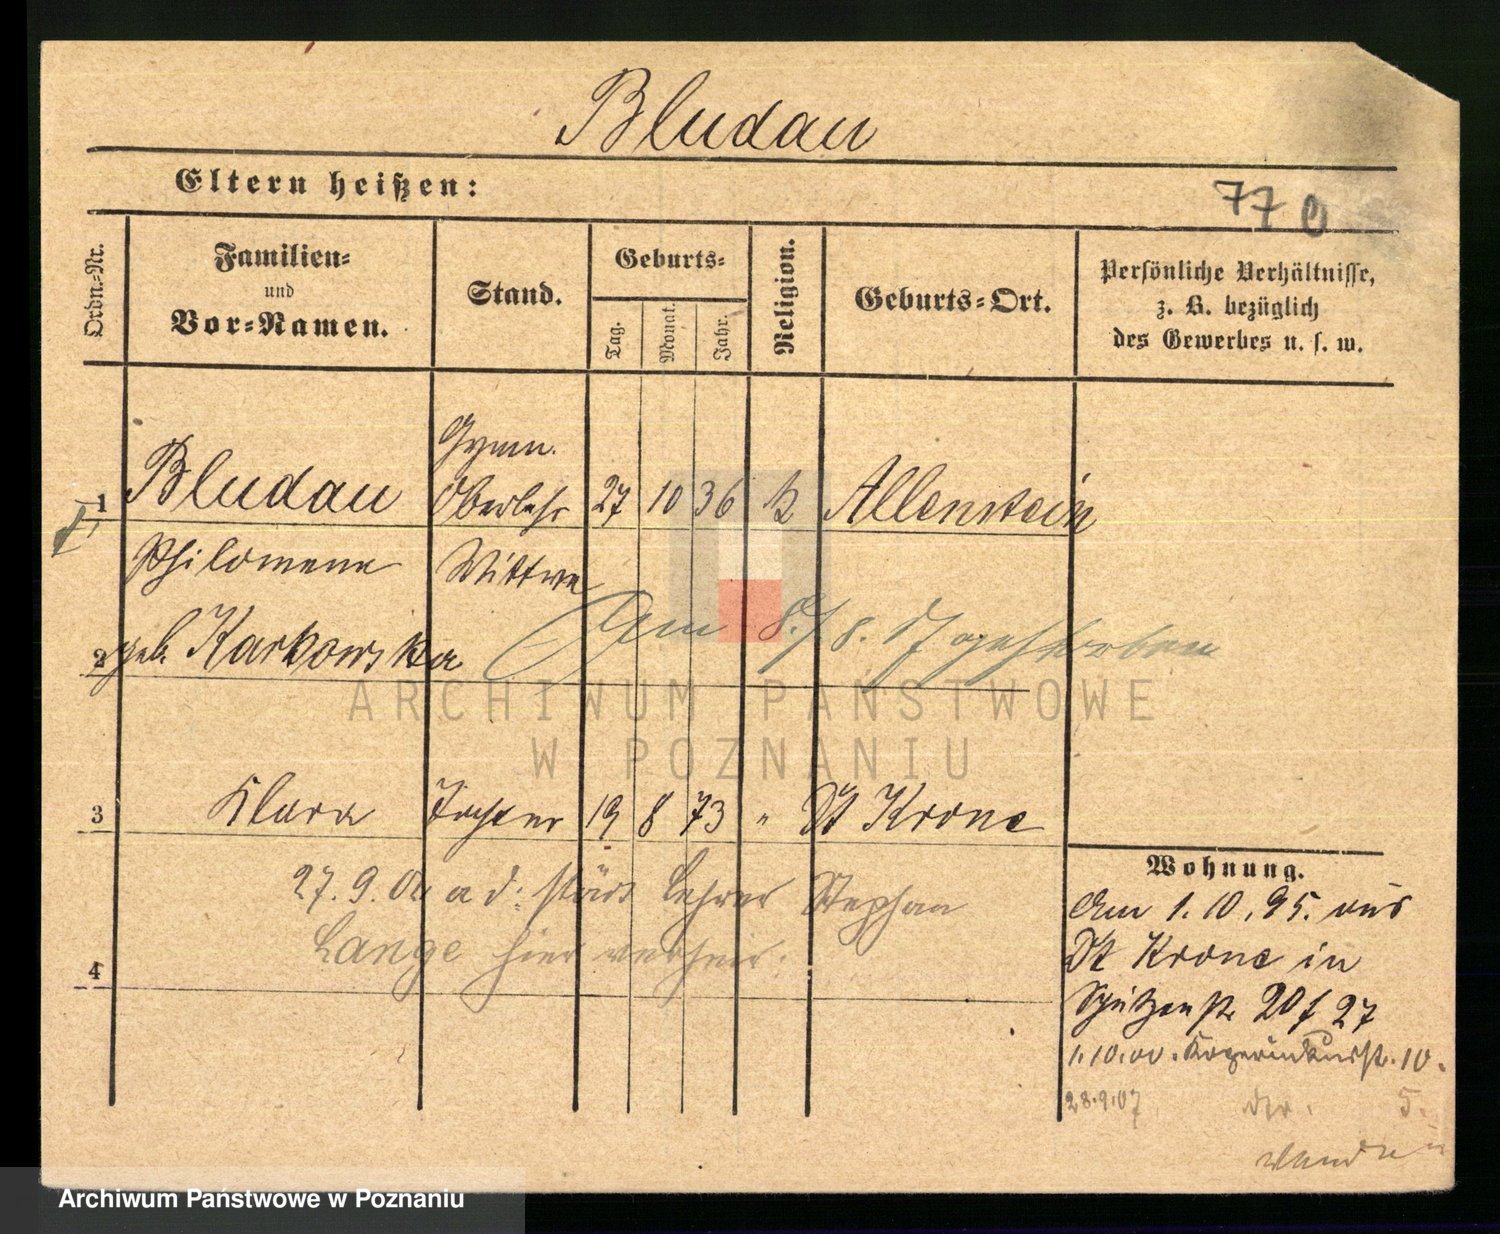 Bludau
Eltern heißen:
77
Ordn.-Nr.
Familien-
und
Vor-Namen.
Stand.
Geburts-
Tag.
Monat.
Jahr.
Religion.
Geburts-Ort.
Persönliche Verhältnisse,
z. B. bezüglich
des Gewerbes u. s. w.
Gymn.
1 Bludau Oberlehr 27 10 36 k Allenstein
Philomena Wittwe
2 geb. Karkowska
Am 8./8. 17 gestorben
3 Klara Tochter 19 8 73 " Dt Krone
27.9.04 a d: städt Lehrer Stephan
Lange hier verheir:
4
Wohnung.
Am 1.10.95. aus
Dt Krone in
Schützenstr 20 f 27
1.10.00. 10.
28.9.07 5.
ARCHIWUM PAŃSTWOWE
W POZNANIU
Archiwum Państwowe w Poznaniu